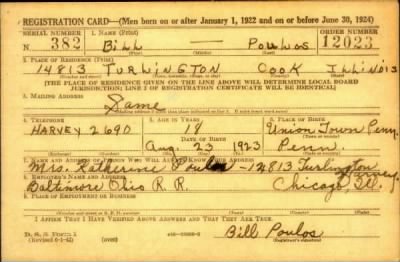 REGISTRATION CARD—(Men born on or after January 1, 1922 and on or before June 30, 1924)
SERIAL NUMBER 1. NAME (Print) ORDER NUMBER
N 382 BILL — POULOS 12023
(First) (Middle) (Last)
2. PLACE OF RESIDENCE (Print)
14813 TURLINGTON COOK ILLINOIS
(Number and street) (County) (State)
[THE PLACE OF RESIDENCE GIVEN ON THE LINE ABOVE WILL DETERMINE LOCAL BOARD
JURISDICTION; LINE 2 OF REGISTRATION CERTIFICATE WILL BE IDENTICAL]
3. MAILING ADDRESS
Same
4. TELEPHONE 5. AGE IN YEARS 6. PLACE OF BIRTH
HARVEY 2690 18 Union Town Penn.
DATE OF BIRTH
Aug. 23 1923 Penn.
7. NAME AND ADDRESS OF PERSON WHO WILL ALWAYS KNOW YOUR ADDRESS
Mrs. Katherine Poulos — 14813 Turlington
Harvey
8. EMPLOYER'S NAME AND ADDRESS
Baltimore Ohio R. R. Chicago Ill.
9. PLACE OF EMPLOYMENT OR BUSINESS
(Number and street or R. F. D. number) (Town) (County) (State)
I AFFIRM THAT I HAVE VERIFIED ABOVE ANSWERS AND THAT THEY ARE TRUE.
D. S. S. Form 1
(Revised 6-1-42) (over)
Bill Poulos
(Registrant's signature)